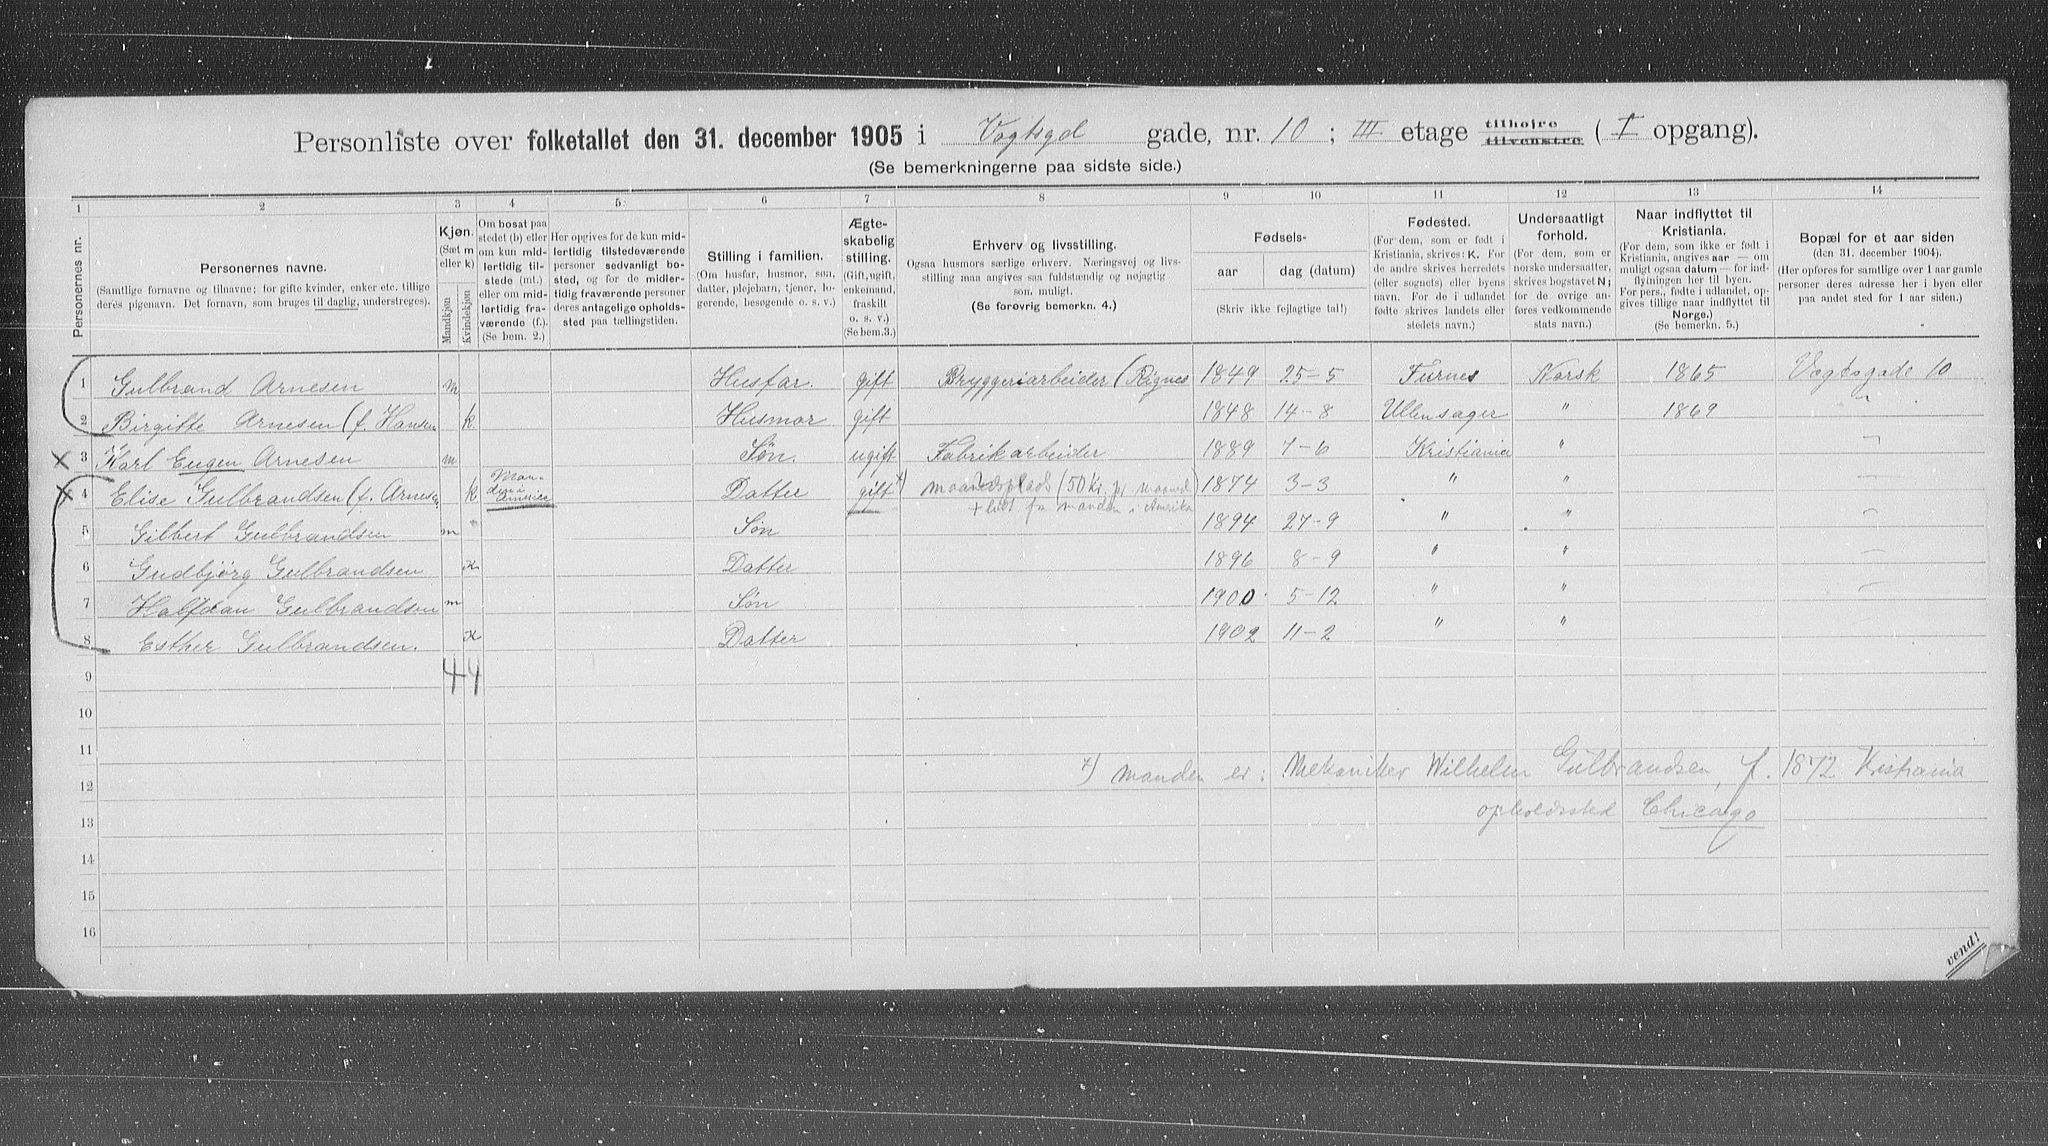 Personliste over folketallet den 31. december 1905 i Vogtsgd gade, nr. 10; III etage tilhøjre tilvenstre (I opgang).
(Se bemerkningerne paa sidste side.)
1 2 3 4 5 6 7 8 9 10 11 12 13 14
Personernes nr.
Personernes navne.
(Samtlige fornavne og tilnavne; for gifte kvinder, enker etc. tillige
deres pigenavn. Det fornavn, som bruges til daglig, understreges).
Kjøn.
(Sæt m
eller k)
Mandkjøn
Kvindekjøn
Om bosat paa
stedet (b) eller
om kun mid-
lertidig til-
stede (mt.)
eller om mid-
lertidig fra-
værende (f.).
(Se bem. 2.)
Her opgives for de kun mid-
lertidig tilstedeværende
personer sedvanlig bo-
sted, og for de midler-
tidig fraværende personer
deres antagelige opholds-
sted paa tællingstiden.
Stilling i familien.
(Om husfar, husmor, søn,
datter, plejebarn, tjener, lo-
gerende, besøgende o. s. v.)
Ægte-
skabelig
stilling.
(Gift, ugift,
enkemand,
fraskilt
o. s. v.)
(Se bem.3.)
Erhverv og livsstilling.
Ogsaa husmors særlige erhverv. Næringsvej og livs-
stilling maa angives saa fuldstændig og nøjagtig
som muligt.
(Se forøvrig bemerkn. 4.)
Fødsels-
aar dag (datum)
(Skriv ikke fejlagtige tal!)
Fødested.
(For dem, som er født i
Kristiania, skrives: K. For
de andre skrives herredets
(eller sognets) eller byens
navn. For de i udlandet
fødte skrives landets eller
stedets navn.)
Undersaatligt
forhold.
(For dem, som er
norske undersaatter,
skrives bogstavet N;
for de øvrige an-
føres vedkommende
stats navn.)
Naar indflyttet til
Kristiania.
(For dem, som ikke er født i
Kristiania, angives aar — om
muligt ogsaa datum — for ind-
flyttningen her til byen.
For pers., fødte i udlandet, op-
gives tillige naar indflyttet til
Norge.)
(Se bemerkn. 5.)
Bopæl for et aar siden
(den 31. december 1904).
(Her opføres for samtlige over 1 aar gamle
personer deres adresse her i byen eller
paa andet sted for 1 aar siden.)
1 Gulbrand Arnesen m Husfar. gift Bryggeriarbeider (Rignes 1849 25-5 Furnes Norsk 1865 Vogtsgade 10
2 Birgitte Arnesen (f. Hansen k Husmor gift 1848 14-8 Ullensager " 1869 "
x 3 Karl Eugen Arnesen m Søn. ugift Fabrikarbeider 1889 7-6 Kristiania " —
x 4 Elise Gulbrandsen (f. Arnesen k Datter gift x) maanedsplads (50 Kr. pr maaned) 1874 3-3 " " —
+ lidt fra manden i Amerika
5 Gilbert Gulbrandsen m Søn 1894 27-9 " " —
6 Gudbjörg Gulbrandsen k Datter 1896 8-9 " " —
7 Halfdan Gulbrandsen m Søn 1900 5-12 " " —
8 Esther Gulbrandsen. k Datter 1902 11-2 " "
4 4
9
10
11
x) manden er: Mekaniker Wilhelm Gulbrandsen, f. 1872 Kristiania
12
opholdssted Chicago
13
14
15
16
vend!